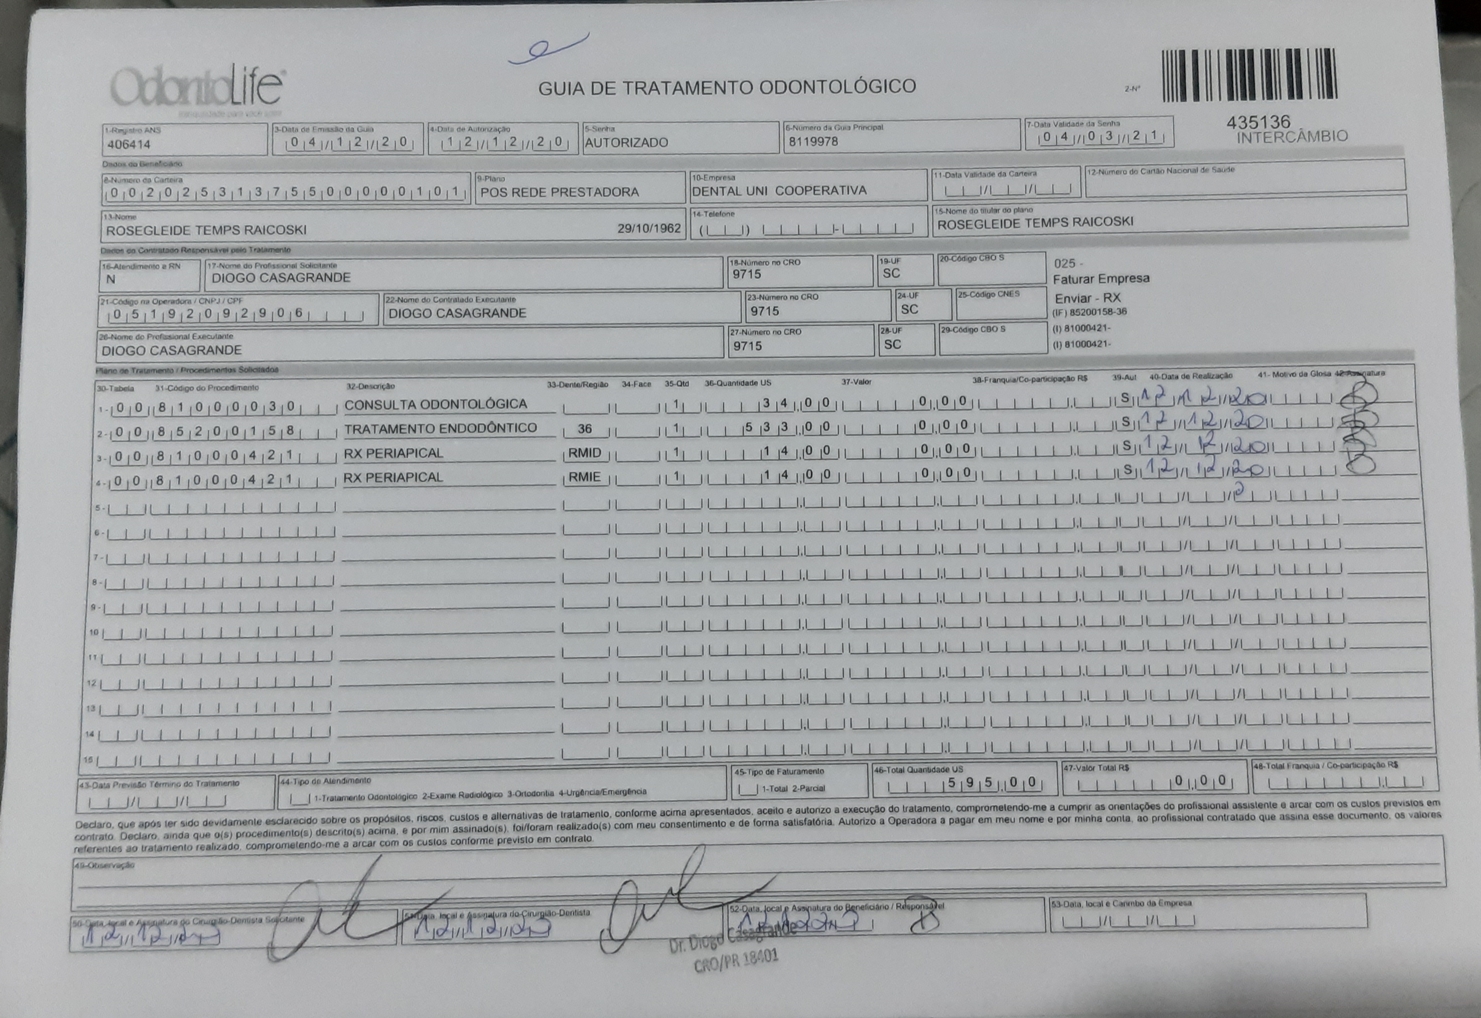 OdontoLife
GUIA DE TRATAMENTO ODONTOLÓGICO
2-Nº
435136
INTERCÂMBIO
1-Registro ANS 3-Data de Emissão da Guia 4-Data de Autorização 5-Senha 6-Número da Guia Principal 7-Data Validade da Senha
406414 04/12/20 12/12/20 AUTORIZADO 8119978 04/03/21
Dados do Beneficiário
8-Número da Carteira 9-Plano 10-Empresa 11-Data Validade da Carteira 12-Número do Cartão Nacional de Saúde
00202531375500000101 POS REDE PRESTADORA DENTAL UNI COOPERATIVA
13-Nome 14-Telefone 15-Nome do titular do plano
ROSEGLEIDE TEMPS RAICOSKI 29/10/1962 ROSEGLEIDE TEMPS RAICOSKI
Dados do Contratado Responsável pelo Tratamento
16-Atendimento a RN 17-Nome do Profissional Solicitante 18-Número no CRO 19-UF 20-Código CBO S
N DIOGO CASAGRANDE 9715 SC
025 -
Faturar Empresa
21-Código na Operadora / CNPJ / CPF 22-Nome do Contratado Executante 23-Número no CRO 24-UF 25-Código CNES
05192092906 DIOGO CASAGRANDE 9715 SC
Enviar - RX
(IF) 85200158-36
26-Nome do Profissional Executante 27-Número no CRO 28-UF 29-Código CBO S
DIOGO CASAGRANDE 9715 SC
(I) 81000421-
(I) 81000421-
Plano de Tratamento / Procedimentos Solicitados
30-Tabela 31-Código do Procedimento 32-Descrição 33-Dente/Região 34-Face 35-Qtd 36-Quantidade US 37-Valor 38-Franquia/Co-participação R$ 39-Aut 40-Data de Realização 41- Motivo da Glosa 42-Assinatura
1- 00 81000030 CONSULTA ODONTOLÓGICA 1 34,00 0,00 S 12/12/20
2- 00 85200158 TRATAMENTO ENDODÔNTICO 36 1 533,00 0,00 S 12/12/20
3- 00 81000421 RX PERIAPICAL RMID 1 14,00 0,00 S 12/12/20
4- 00 81000421 RX PERIAPICAL RMIE 1 14,00 0,00 S 12/12/20
5-
6-
7-
8-
9-
10
11
12
13
14
15
43-Data Previsão Término do Tratamento 44-Tipo de Atendimento 45-Tipo de Faturamento 46-Total Quantidade US 47-Valor Total R$ 48-Total Franquia / Co-participação R$
1-Tratamento Odontológico 2-Exame Radiológico 3-Ortodontia 4-Urgência/Emergência 1-Total 2-Parcial 595,00 0,00
Declaro, que após ter sido devidamente esclarecido sobre os propósitos, riscos, custos e alternativas de tratamento, conforme acima apresentados, aceito e autorizo a execução do tratamento, comprometendo-me a cumprir as orientações do profissional assistente e arcar com os custos previstos em
contrato. Declaro, ainda que o(s) procedimento(s) descrito(s) acima, e por mim assinado(s), foi/foram realizado(s) com meu consentimento e de forma satisfatória. Autorizo a Operadora a pagar em meu nome e por minha conta, ao profissional contratado que assina esse documento, os valores
referentes ao tratamento realizado, comprometendo-me a arcar com os custos conforme previsto em contrato.
49-Observação
50-Data, local e Assinatura do Cirurgião-Dentista Solicitante 51-Data, local e Assinatura do Cirurgião-Dentista 52-Data, local e Assinatura do Beneficiário / Responsável 53-Data, local e Carimbo da Empresa
Dr. Diogo Casagrande
CRO/PR 18401